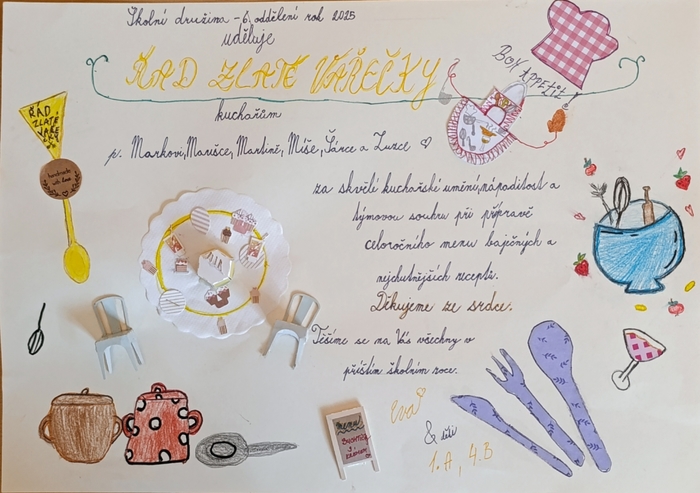 Školní družina - 6. oddělení rok 2025
uděluje
ŘÁD ZLATÉ VAŘEČKY
BON APPETIT!
kuchařům
p. Markovi, Marušce, Martině, Míše, Šárce a Zuzce
ŘÁD
ZLATÉ
VAŘE
ČKY
handmade
with love
za skvělé kuchařské umění, nápaditost a
týmovou souhru při přípravě
celoročního menu báječných a
nejchutnějších receptů.
Děkujeme ze srdce.
Těšíme se na Vás všechny v
příštím školním roce.
Eva
& děti
1.A, 4.B
menu
BUCHTIČKY